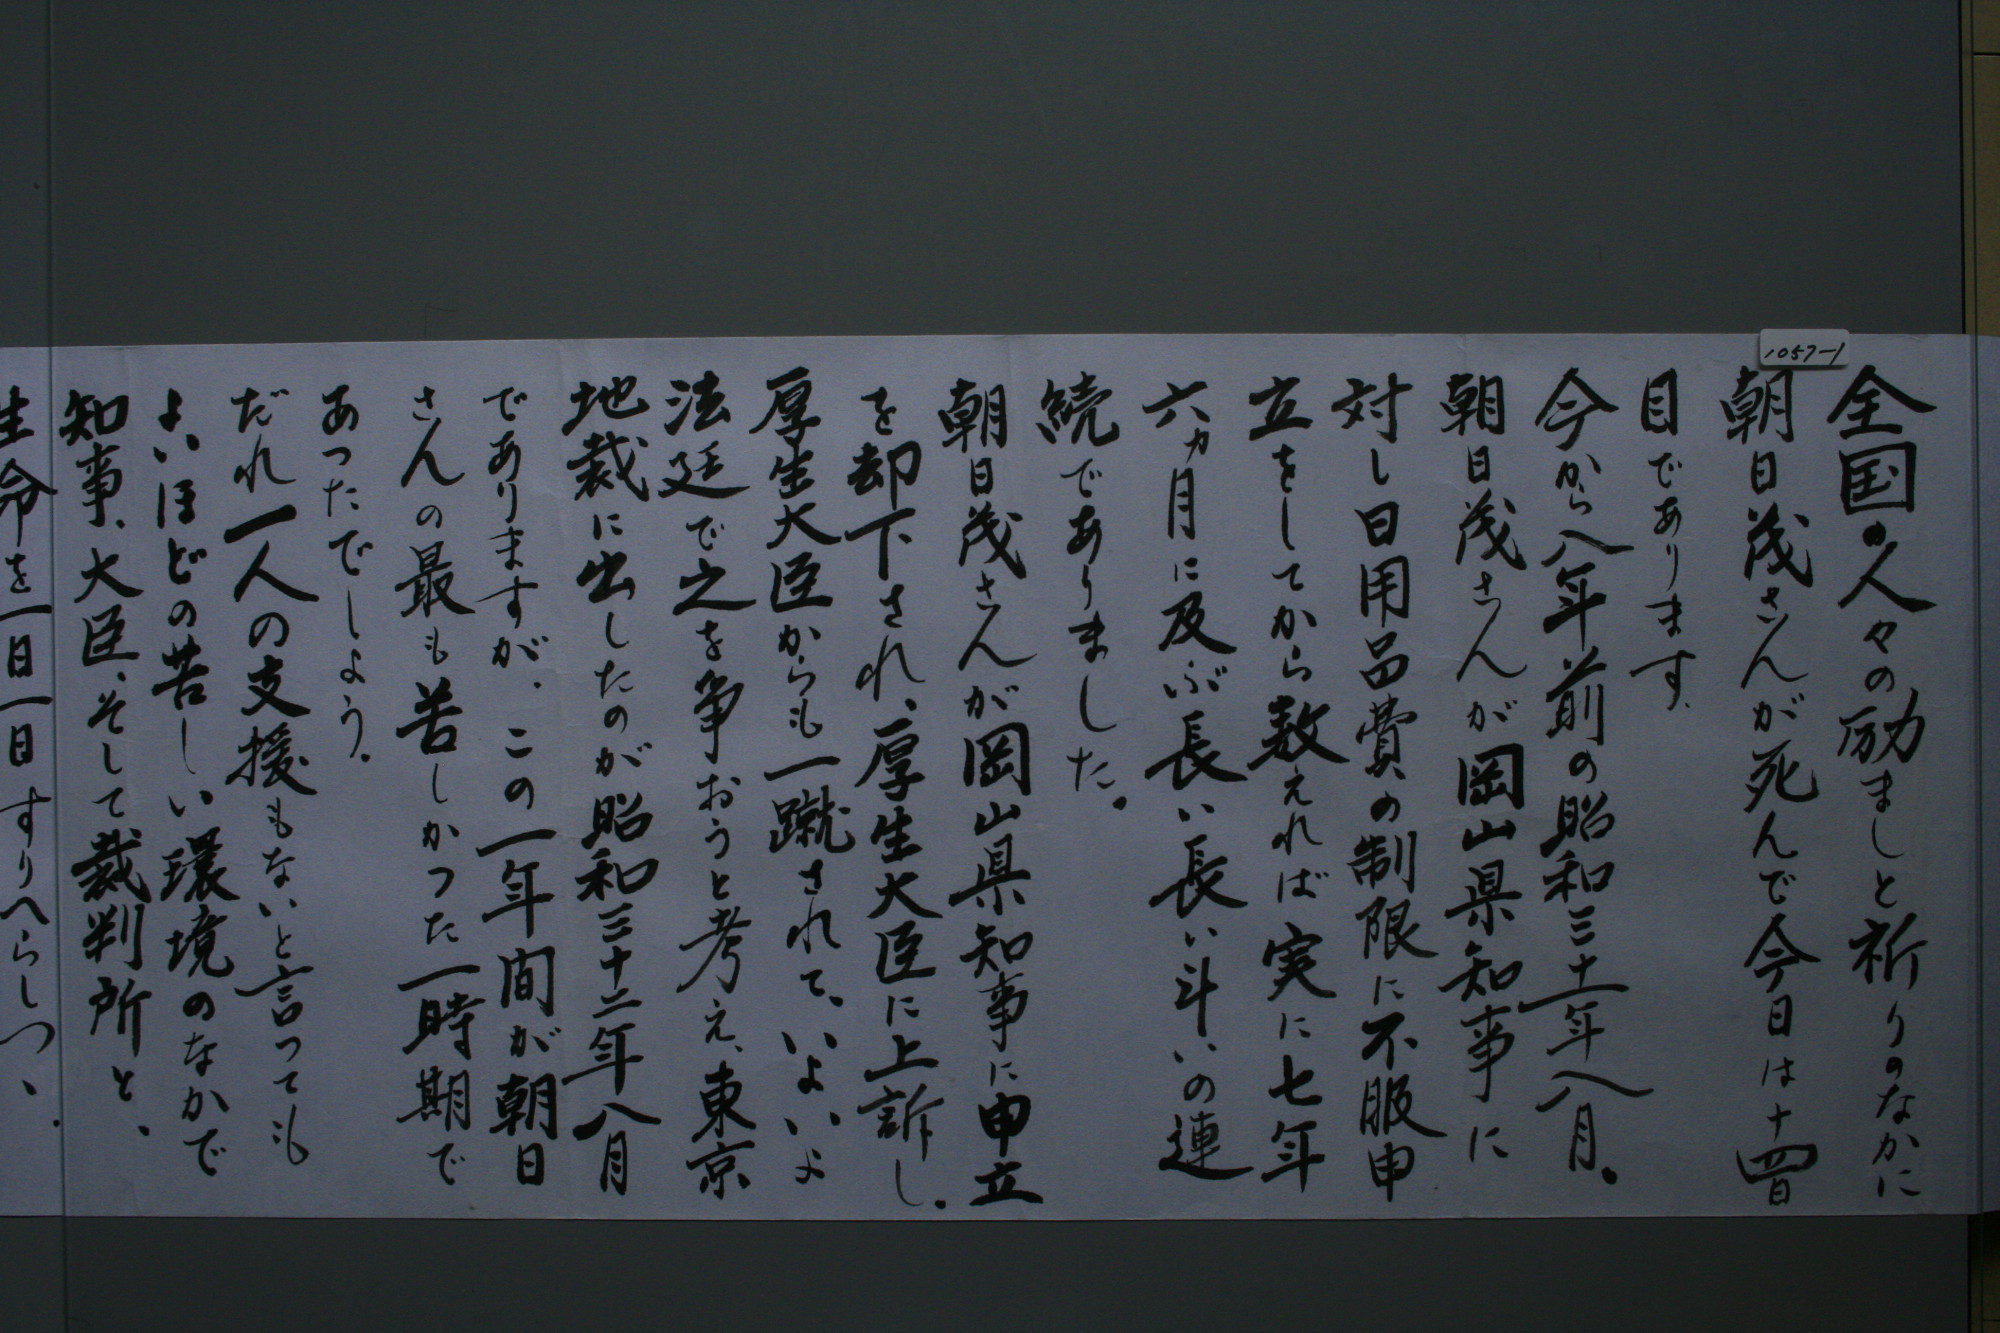 1057-1
全国の人々の励ましと祈りのなかに
朝日茂さんが死んで今日は十四日
目であります、
今から八年前の昭和三十一年八月。
朝日茂さんが岡山県知事に
対し日用品費の制限に不服申
立をしてから数えれば実に七年
六ヵ月に及ぶ長い長い斗いの連
続でありました。
朝日茂さんが岡山県知事に申立
を却下され、厚生大臣に上訴し、
厚生大臣からも一蹴されて、いよいよ
法廷で之を争おうと考え、東京
地裁に出したのが昭和三十二年八月
でありますが、この一年間が朝日
さんの最も苦しかつた一時期で
あつたでしよう。
だれ一人の支援もないと言つても
よいほどの苦しい環境のなかで
知事、大臣、そして裁判所と、
生命を一日一日すりへらしつゝ、